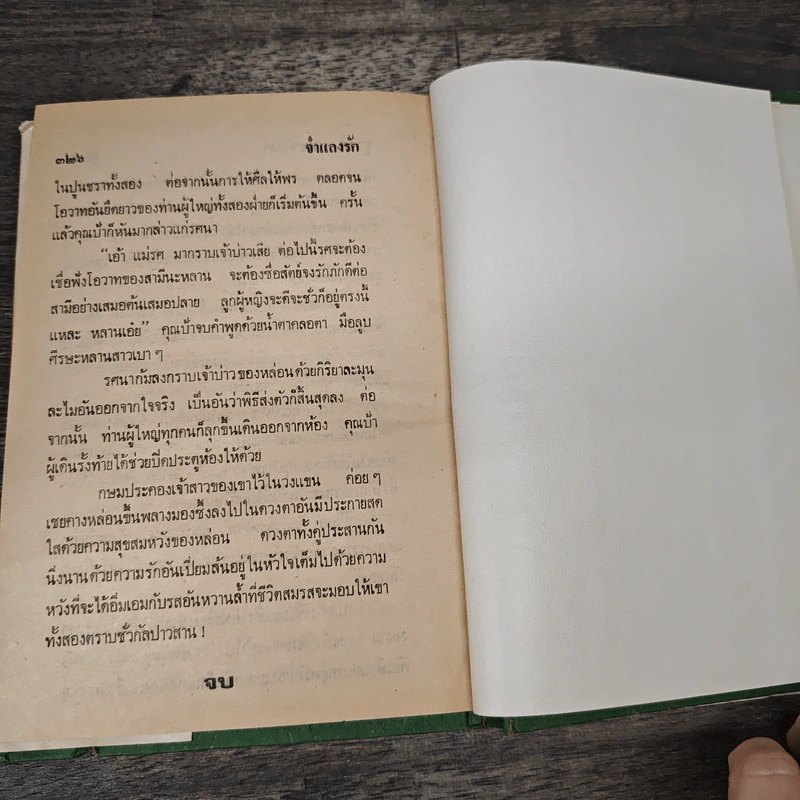 ๓๒๖
จำแลงรัก
ในปูนชราทั้งสอง ต่อจากนั้นการให้ศีลให้พร ตลอดจน
โอวาทอันยืดยาวของท่านผู้ใหญ่ทั้งสองฝ่ายก็เริ่มต้นขึ้น ครั้น
แล้วคุณป้าก็หันมากล่าวแก่รศนา
“เอ้า แม่รศ มากราบเจ้าบ่าวเสีย ต่อไปนี้รศจะต้อง
เชื่อฟังโอวาทของสามีนะหลาน จะต้องซื่อสัตย์จงรักภักดีต่อ
สามีอย่างเสมอต้นเสมอปลาย ลูกผู้หญิงจะดีจะชั่วก็อยู่ตรงนี้
แหละ หลานเอ๋ย” คุณป้าจบคำพูดด้วยน้ำตาคลอตา มือลูบ
ศีรษะหลานสาวเบา ๆ
รศนาก้มลงกราบเจ้าบ่าวของหล่อนด้วยกิริยาละมุน
ละไมอันออกจากใจจริง เป็นอันว่าพิธีส่งตัวก็สิ้นสุดลง ต่อ
จากนั้น ท่านผู้ใหญ่ทุกคนก็ลุกขึ้นเดินออกจากห้อง คุณป้า
ผู้เดินรั้งท้ายได้ช่วยปิดประตูห้องให้ด้วย
กษมประคองเจ้าสาวของเขาไว้ในวงแขน ค่อย ๆ
เชยคางหล่อนขึ้นพลางมองซึ้งลงไปในดวงตาอันมีประกายสด
ใสด้วยความสุขสมหวังของหล่อน ดวงตาทั้งคู่ประสานกัน
นิ่งนานด้วยความรักอันเปี่ยมล้นอยู่ในหัวใจเต็มไปด้วยความ
หวังที่จะได้อิ่มเอมกับรสอันหวานล้ำที่ชีวิตสมรสจะมอบให้เขา
ทั้งสองตราบชั่วกัลปาวสาน !
จบ